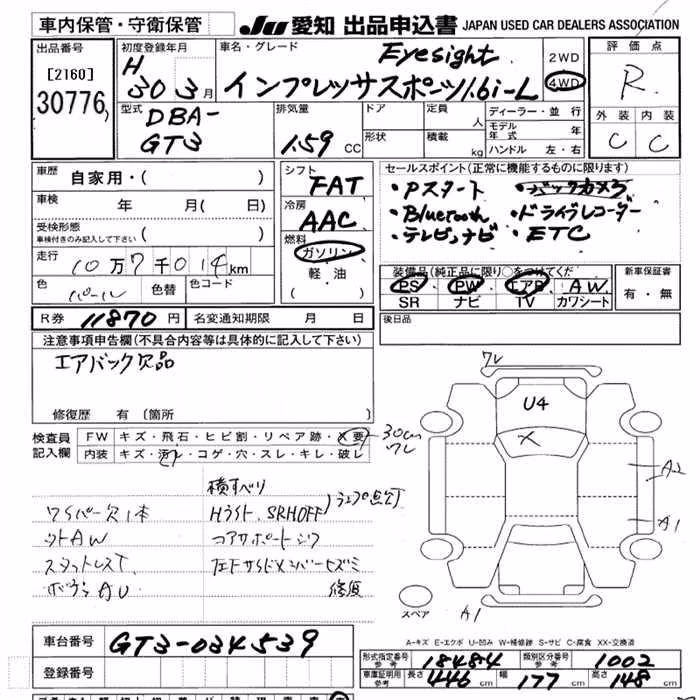 車内保管・守衛保管 JU 愛知 出品申込書 JAPAN USED CAR DEALERS ASSOCIATION
出品番号 [2160] 30776
初度登録年月 H 30 3月
車名・グレード Eyesight インプレッサスポーツ1.6i-L
2WD 4WD
評価点 R
外装 内装 C C
型式 DBA-GT3
排気量 1.59 CC
ドア 形状
定員 人 積載 kg
ディーラー・並行
モデル年式 年
ハンドル 左・右
車歴 自家用・( )
車検 年 月( 日)
受検形態 車検付きのみ記入して下さい ( )
走行 10万7千014km
色 パール 色替 色コード
シフト FAT
冷房 AAC
燃料 ガソリン 軽・油 ( )
セールスポイント(正常に機能するものに限ります)
・Pスタート ・バックカメラ
・Bluetooth ・ドライブレコーダー
・テレビ,ナビ ・ETC
装備品(純正品に限り○をつけてくだ
PS PW エアB AW
SR ナビ TV カワシート
新車保証書 有・無
R券 11870円 名変通知期限 月 日
後日品
注意事項申告欄(不具合内容等は具体的に記入して下さい)
エアバック欠品
修復歴 有〔箇所
検査員記入欄 FW キズ・飛石・ヒビ割・リペア跡・X要 30cm ワレ
内装 キズ・汚レ・コゲ・穴・スレ・キレ・破レ
横すべり
ワイパー欠1本 Hライト、SRHOFF
ソトAW コアサポート
修復
ワレ
U4
X
A2
A1
A1
スペア
A-キズ E-エクボ U-凹み W-補修跡 S-サビ C-腐食 XX-交換済
車台番号 GT3-034539
登録番号
形式指定番号 参考 18484 類別区分番号 参考 1002
車庫証明用 参考 長さ 446cm 幅 177cm 高さ 148cm